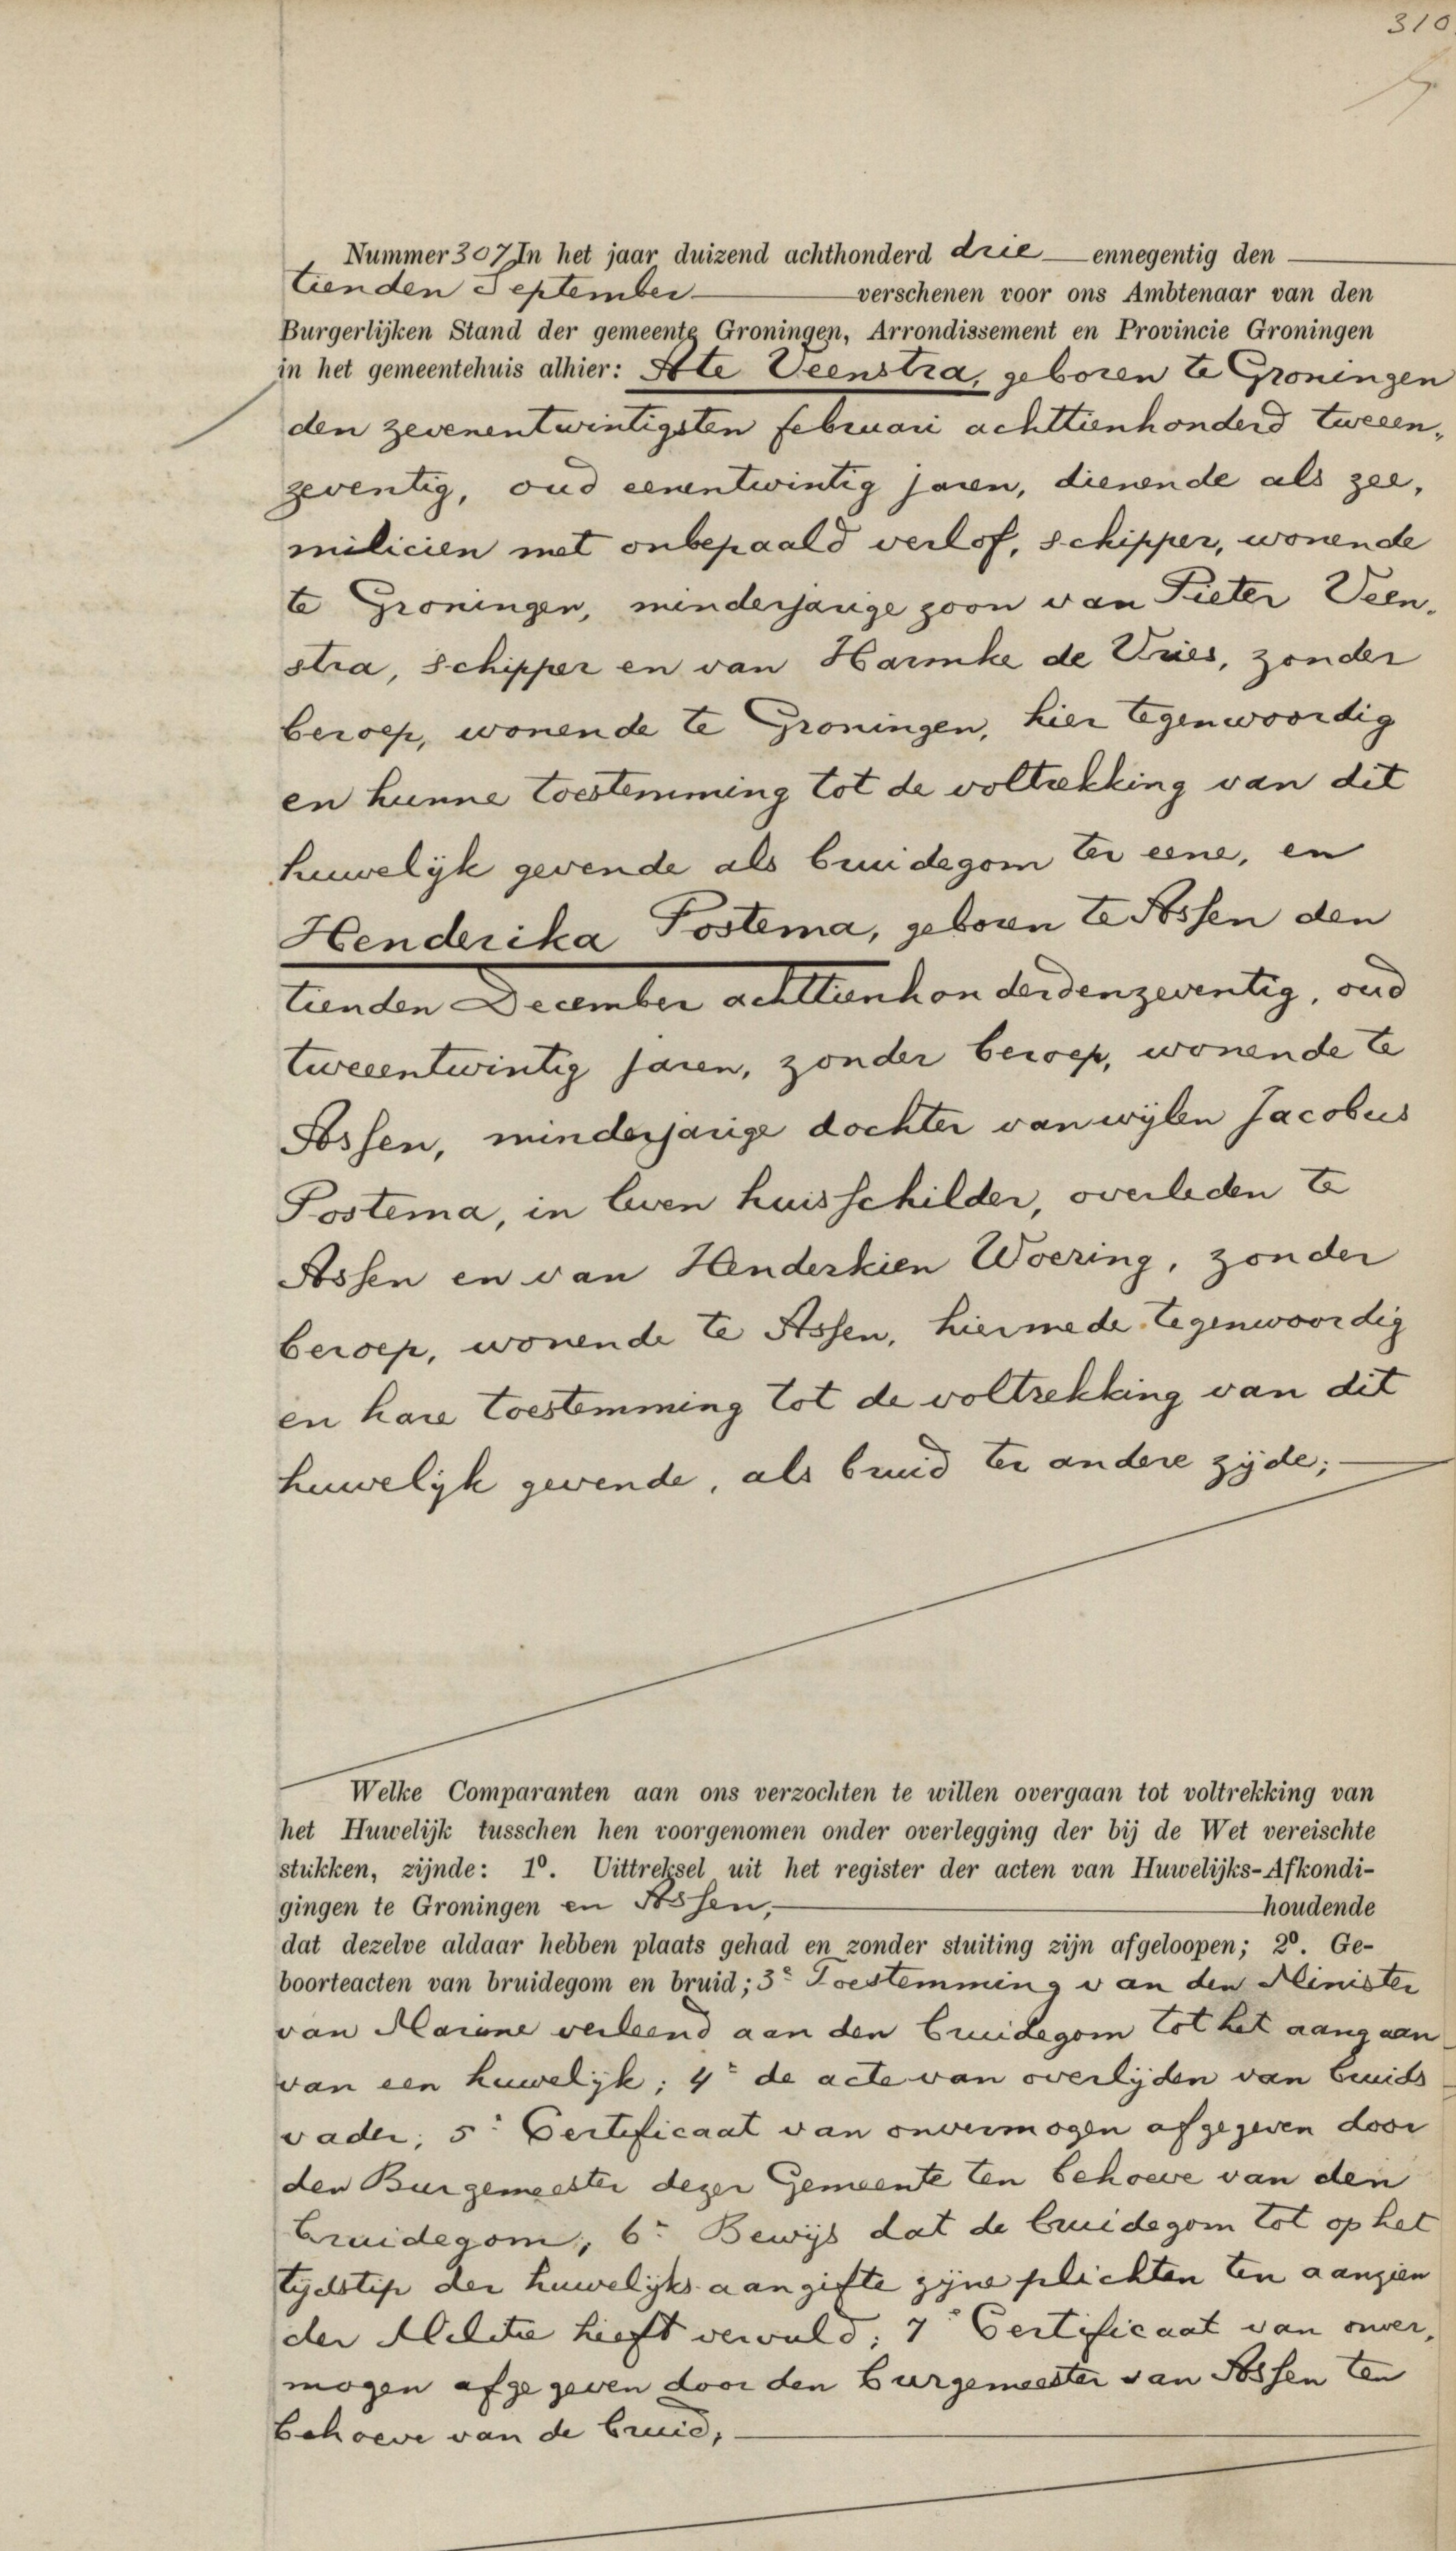 310.
Nummer 307 In het jaar duizend achthonderd drie ennegentig den
tienden September verschenen voor ons Ambtenaar van den
Burgerlijken Stand der gemeente Groningen, Arrondissement en Provincie Groningen
in het gemeentehuis alhier: Ate Veenstra, geboren te Groningen
den zevenentwintigsten februari achttienhonderd tweeen„
zeventig, oud eenentwintig jaren, dienende als zee,
milicien met onbepaald verlof, schipper, wonende
te Groningen, minderjarige zoon van Pieter Veen.
stra, schipper en van Harmke de Vries, zonder
beroep, wonende te Groningen, hier tegenwoordig
en hunne toestemming tot de voltrekking van dit
huwelijk gevende als bruidegom ter eene, en
Henderika Postema, geboren te Assen den
tienden December achttienhonderdenzeventig, oud
tweeentwintig jaren, zonder beroep, wonende te
Assen, minderjarige dochter van wijlen Jacobus
Postema, in leven huisschilder, overleden te
Assen en van Henderkien Woering, zonder
beroep, wonende te Assen, hiermede tegenwoordig
en hare toestemming tot de voltrekking van dit
huwelijk gevende, als bruid ter andere zijde;
Welke Comparanten aan ons verzochten te willen overgaan tot voltrekking van
het Huwelijk tusschen hen voorgenomen onder overlegging der bij de Wet vereischte
stukken, zijnde: 1º. Uittreksel uit het register der acten van Huwelijks-Afkondi-
gingen te Groningen en Assen, houdende
dat dezelve aldaar hebben plaats gehad en zonder stuiting zijn afgeloopen; 2º. Ge-
boorteacten van bruidegom en bruid; 3º Toestemming van den Minister
van Marine verleend aan den bruidegom tot het aangaan
van een huwelijk; 4º de acte van overlijden van bruids
vader; 5º Certificaat van onvermogen afgegeven door
den Burgemeester dezer Gemeente ten behoeve van den
bruidegom; 6º Bewijs dat de bruidegom tot op het
tijdstip der huwelijks aangifte zijne plichten ten aanzien
der Militie heeft vervuld; 7º Certificaat van onver,
mogen afgegeven door den burgemeester van Assen ten
behoeve van de bruid;